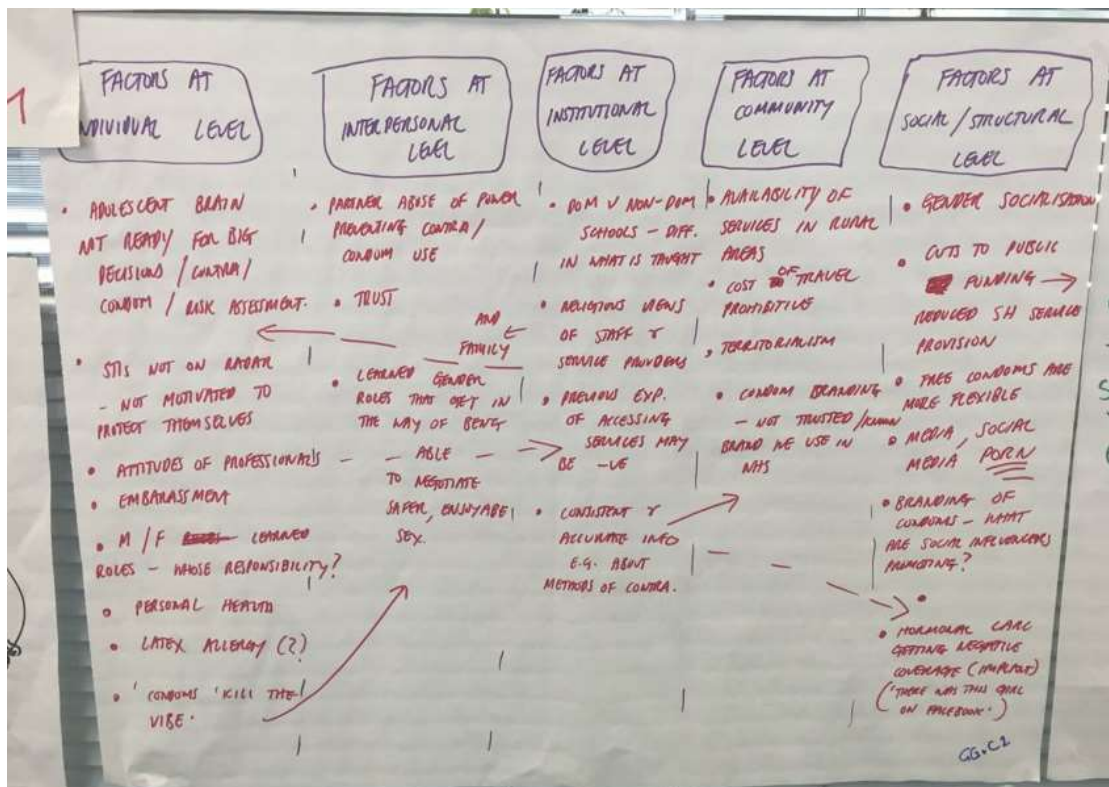 1
FACTORS AT
INDIVIDUAL LEVEL
• ADOLESCENT BRAIN
NOT READY FOR BIG
DECISIONS / CONTRA /
CONDOM / RISK ASSESSMENT.
• STIS NOT ON RADAR
- NOT MOTIVATED TO
PROTECT THEMSELVES
• ATTITUDES OF PROFESSIONALS
• EMBARASSMENT
• M/F LEARNED
ROLES - WHOSE RESPONSIBILITY?
• PERSONAL HEALTH
• LATEX ALLERGY (?)
• 'CONDOMS 'KILL THE
VIBE'
FACTORS AT
INTERPERSONAL
LEVEL
• PARTNER ABUSE OF POWER
PREVENTING CONTRA/
CONDOM USE
• TRUST
AND
FAMILY
• LEARNED GENDER
ROLES THAT GET IN
THE WAY OF BEING
ABLE
TO NEGOTIATE
SAFER, ENJOYABE
SEX.
FACTORS AT
INSTITUTIONAL
LEVEL
• DOM V NON-DOM
SCHOOLS - DIFF.
IN WHAT IS TAUGHT
• RELIGIOUS VIEWS
OF STAFF &
SERVICE PROVIDERS
• PREVIOUS EXP.
OF ACCESSING
SERVICES MAY
BE -VE
• CONSISTENT &
ACCURATE INFO
E.G. ABOUT
METHODS OF CONTRA.
FACTORS AT
COMMUNITY
LEVEL
• AVAILABILITY OF
SERVICES IN RURAL
AREAS
• COST OF TRAVEL
PROHIBITIVE
• TERRITORIALISM
• CONDOM BRANDING
- NOT TRUSTED/KNOWN
BRAND WE USE IN
NHS
FACTORS AT
SOCIAL/STRUCTURAL
LEVEL
• GENDER SOCIALISATION
• CUTS TO PUBLIC
FUNDING →
REDUCED SH SERVICE
PROVISION
• FREE CONDOMS ARE
MORE FLEXIBLE
• MEDIA, SOCIAL
MEDIA PORN
• BRANDING OF
CONDOMS - WHAT
ARE SOCIAL INFLUENCERS
PROMOTING?
• HORMONAL LARC
GETTING NEGATIVE
COVERAGE (IMPLANT)
('THERE WAS THIS GIRL
ON FACEBOOK.')
GG.C2